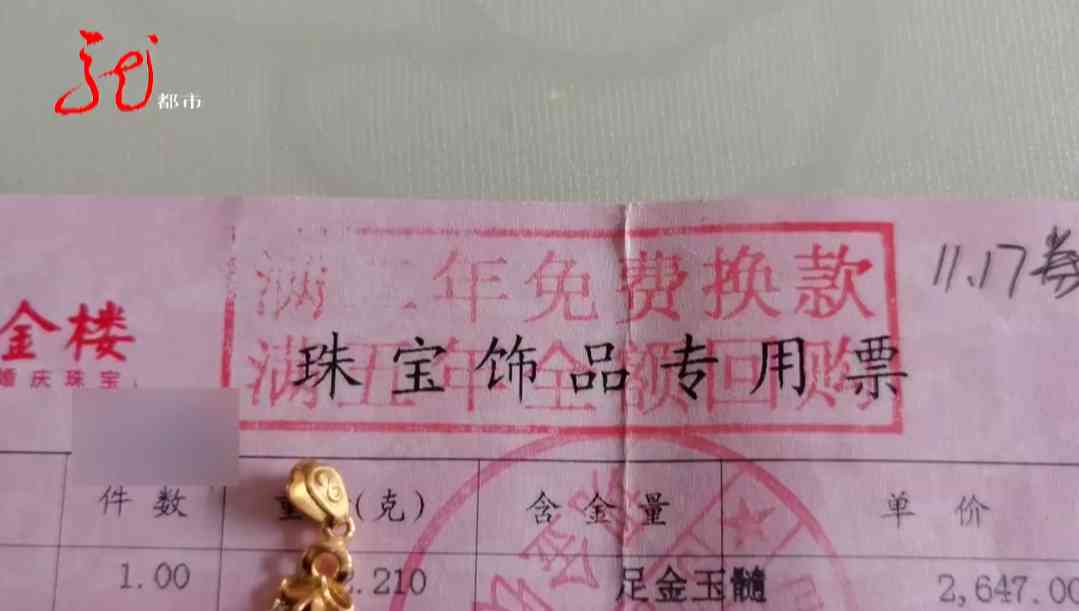 都市
11.17
满二年免费换款
满五年全额回购
金楼
婚庆珠宝
珠宝饰品专用票
件数 重 (克) 含金量 单价
1.00 .210 足金玉髓 2,647.00